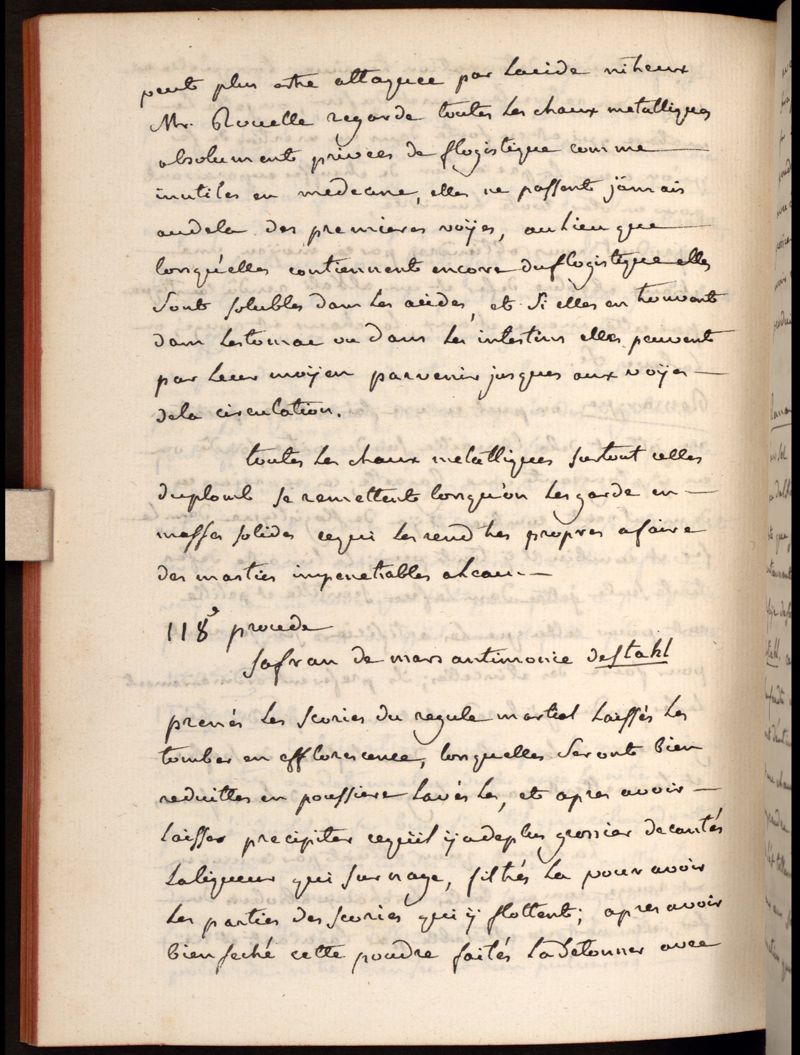 peut plus etre attaquée par lacide nitreux
Mr. Rouelle regarde toutes les chaux metalliques
absolument privées de flogistique comme
inutiles en medecine, elles ne passent jamais
audela des premieres voÿes, aulieu que
lorsqu'elles contiennent encore duflogistique elles
sont solubles dans les acides, et si elles en trouvent
dans lestomac ou dans les intestins elles peuvent
par leur moÿen parvenir jusques aux voÿes
dela circulation.
toutes les chaux metalliques surtout celles
duplomb se remettent lorsqu'on les garde en
masses solides cequi les rend tres propres afaire
des mastics impenetrables aleau.
118e procede
safran de mars antimonié deStahl
prenés les scories du regule martial laissés les
tomber en efflorescence, lorsquelles seront bien
reduittes en poussiere lavés les, et apres avoir
laisser precipiter cequil ÿ adeplus grossier decantés
laliqueur qui surnage, filtrés la pour avoir
les parties des scories qui ÿ flottent; apres avoir
bien seché cette poudre faités ladetonner avec